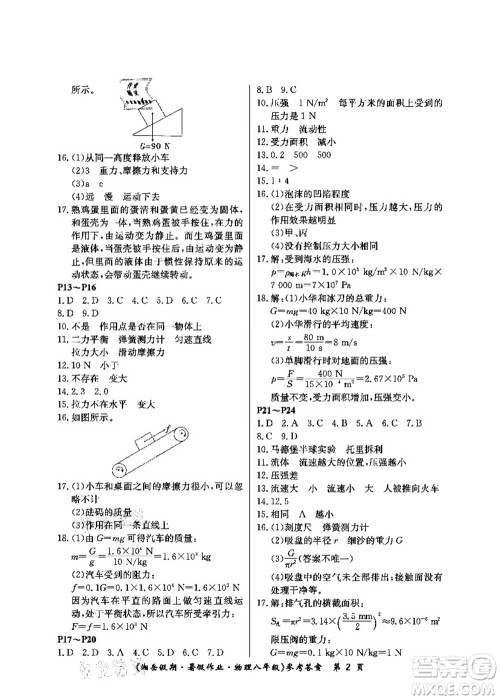 所示。
G=90 N
16. (1)从同一高度释放小车
(2)3 重力、摩擦力和支持力
(3)a c
(4)远 慢 运动下去
17. 熟鸡蛋里面的蛋清和蛋黄已变为固体,
和蛋壳形成一个整体,当蛋壳被手按
住时,蛋清和蛋黄也同时受到了力,在力
的作用下,由运动变为静止。而生鸡蛋里
面是液体,当蛋壳被手按住时,蛋壳由运
动变为静止,但液体由于惯性保持原来的
运动状态,将带动蛋壳继续转动。
P13~P16
1. D 2. D 3. D 4. C 5. A 6. D 7. C
8. D 9. D
10. 不是 作用点是否在同一物体上
11. 二力平衡 弹簧测力计 匀速直线
拉力大小 滑动摩擦力
12. 10 N 不是
13. 不变 变大
14. 2. 3 变大
15. 拉力不在水平 变大
16. 如图所示。
17. (1)小车和桌面之间的摩擦力可以忽
略不计
(2)砝码的质量
(3)作用在同一直线上
18. (1)由 G=mg 得汽车的质量:
m=G/g=1.6×10⁴ N/10 N/kg=1.6×10³ kg
(2)汽车受到的阻力:
f=0.05G=0.05×1.6×10⁴ N=800 N
因为汽车在平直的路面上以大小不变
的速度做匀速直线运动,所以,牵引力
和阻力是一对平衡力,牵引力:
F=f=800 N
P17~P20
1. D 2. D 3. A 4. C 5. D 6. D 7. C
8. B 9. C
10. 压强 1 N/m² 每平方米的面积上受到的
压力是1 N
11. 重力 流动性
12. 受力面积 减小
13. 0.2 500 500
14. = >
15. 1∶4
16. (1)泡沫的凹陷程度
(2)受力面积相同时,压力越大,压力
的作用效果越明显
(3)甲、丙
17. 解:受到海水的压强:
p=ρ海水gh=1.0×10³ kg/m³×10 N/kg×
7 000 m=7×10⁷ Pa
18. 解:(1)小华和冰刀的总重力:
G=mg=40 kg×10 N/kg=400 N
(2)小华滑行的平均速度:
v=s/t=80 m/10 s=8 m/s
(3)单脚滑行时对地面的压强:
p=F/S=G/S=400 N/15×10⁻⁴ m²=2.67×10⁵ Pa
压力不变,受力面积变小,压强变大。
P21~P24
1. D 2. A 3. C 4. A 5. A 6. C 7. C
8. C 9. D
10. 马德堡半球实验 托里拆利
11. 流体 流速越大的位置,压强越小
12. 压强差
13. 流速大 流速大,压强小
14. 12.5
15. 大气压 火车开向右 火车开向左
16. (1)刻度尺 弹簧测力计
(2)吸盘的半径r 细沙的重力G
(3)G/πr²(答案不唯一)
(4)将吸盘内空气排尽(或将容器表面
处理干净等。)
17. 解:排气孔的横截面积:
限压阀的重力:
《湘岳假期·暑假作业·物理八年级》参考答案 第 2 页